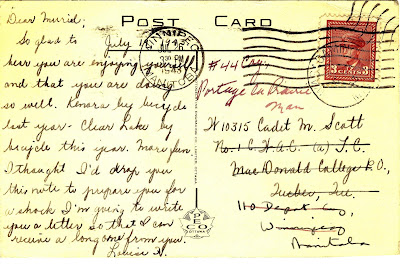 POST CARD
Dear Muriel;
So glad to
July
hear you are enjoying yourself
and that you are doing
so well. Kenora by bicycle
last year - Clear Lake by
bicycle this year. More fun
I thought I'd drop you
this note to prepare you for
a shock I'm going to write
you a letter so that I can
receive a long one from you.
Louise H.
WINNIPEG
1943
3 CENTS 3
#44 Coy.
Portage La Prairie
Man
W 10315 Cadet M. Scott
No. 1 C.W.A.C. (a) T.C.
MacDonald College P.O.,
Quebec, Que.
110 Depot Coy,
Winnipeg
Manitoba
PECO
OTTAWA